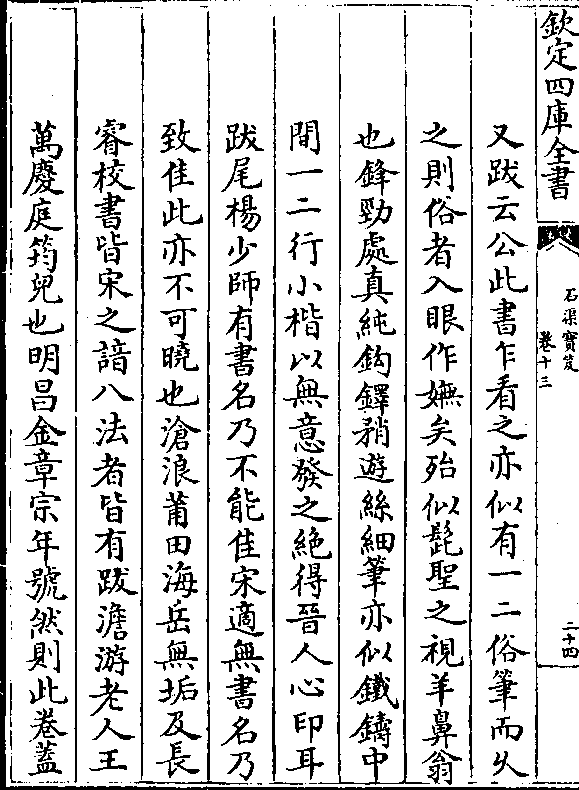 欽定四庫全書
石渠寶笈
卷十三
二十四
又跋云公此書乍看之亦似有一二俗筆而久
之則俗者入眼作嫵矣殆似髭聖之視羊鼻翁
也鋒勁處真純鈎鐸矟遊絲細筆亦似鐵鑄中
間一二行小楷以無意發之絶得晉人心印耳
跋尾楊少師有書名乃不能佳宋適無書名乃
致佳此亦不可曉也滄浪莆田海岳無垢及長
睿校書皆宋之諳八法者皆有跋澹游老人王
萬慶庭筠兒也明昌金章宗年號然則此卷蓋